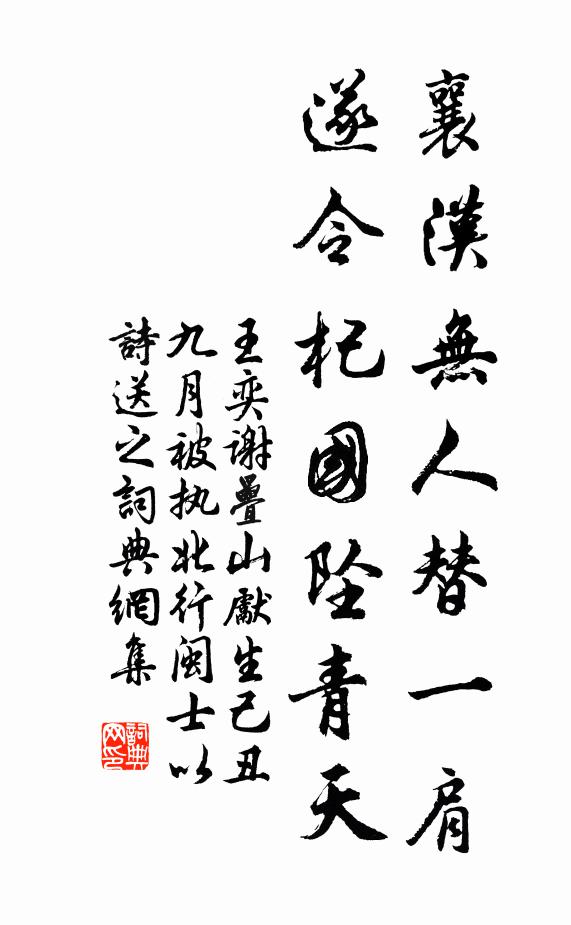 襄漢無人替一肩
遂令杞國墜青天
王奕謝疊山獻生己丑
九月被执北行闽士以
詩送之詞典網集
詞典网印